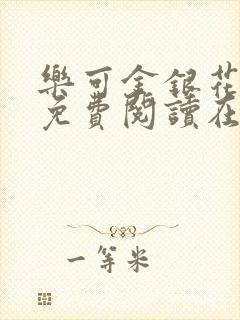 樂可金銀花
免費閱讀在
一等米